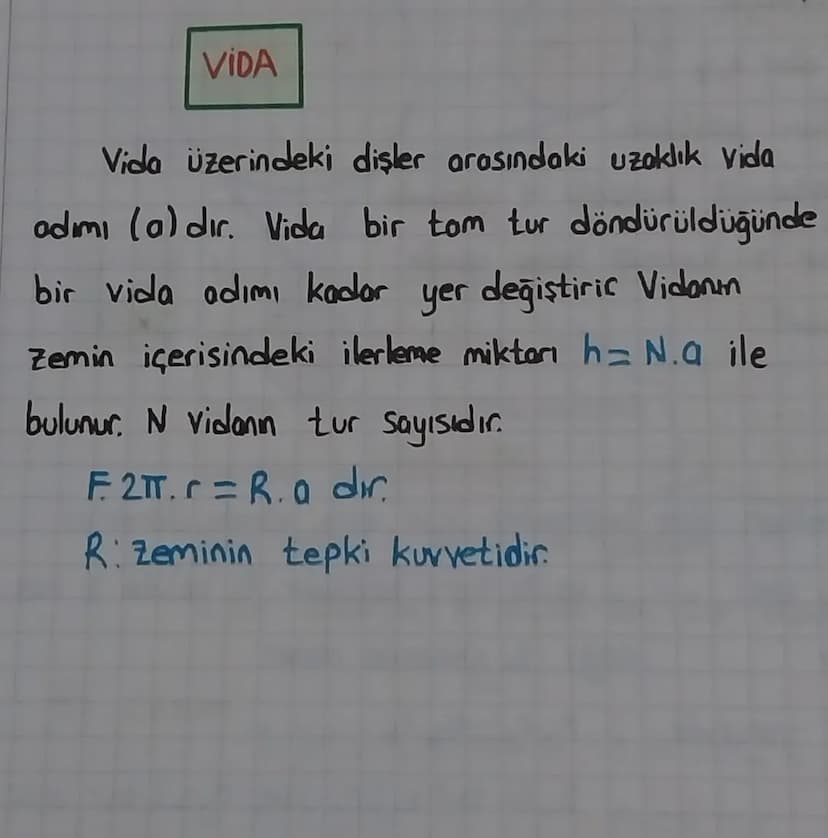 VİDA
Vida üzerindeki dişler arasındaki uzaklık vida
adımı (a) dır. Vida bir tam tur döndürüldüğünde
bir vida adımı kadar yer değiştirir. Vidanın
zemin içerisindeki ilerleme miktarı h = N.a ile
bulunur. N vidanın tur sayısıdır.
F.2π.r = R.a dır.
R: zeminin tepki kuvvetidir.